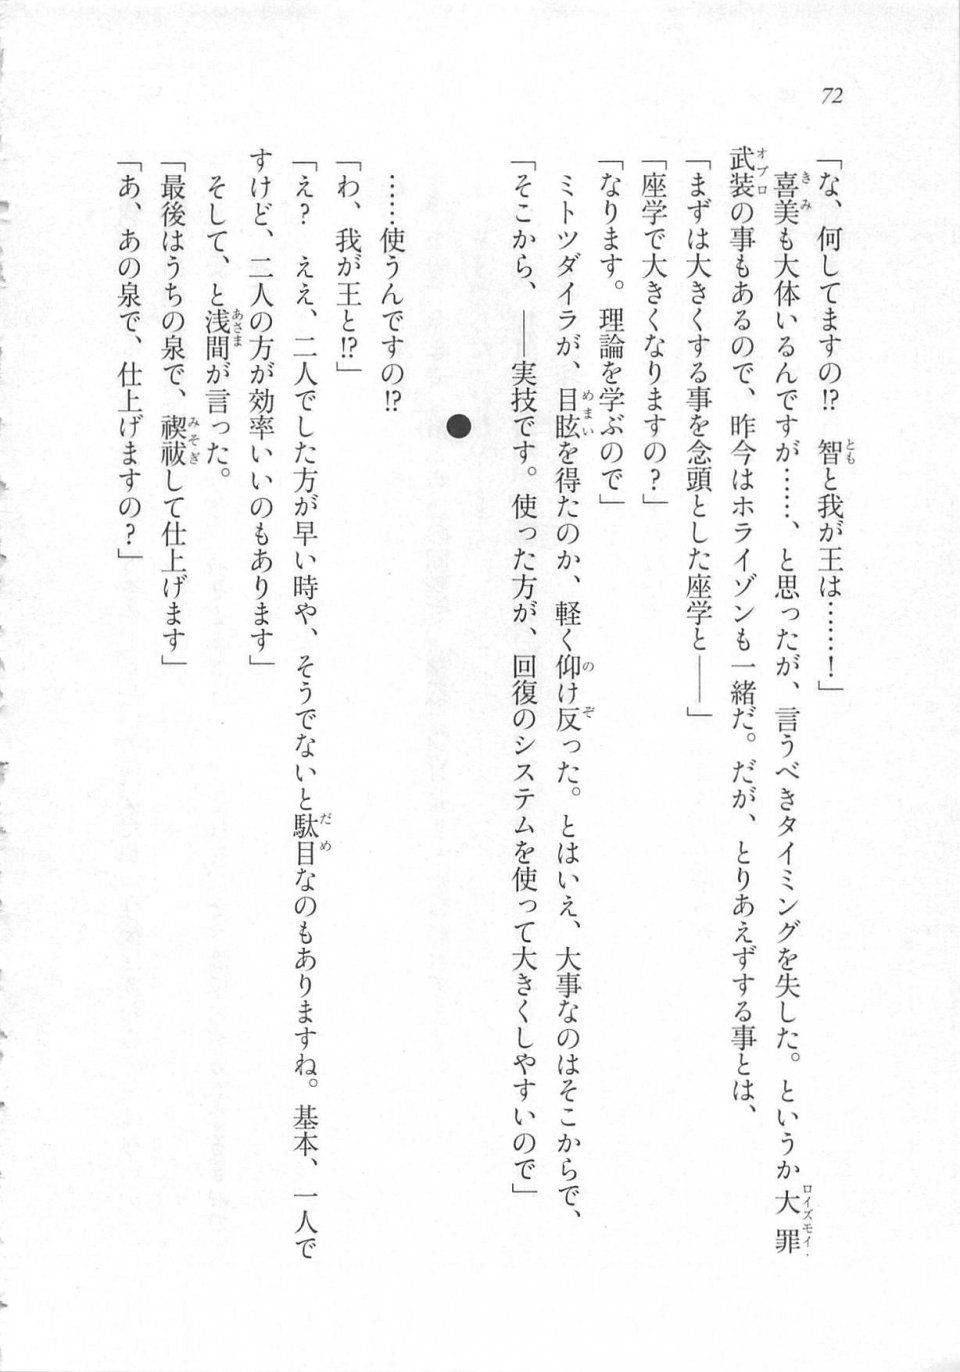 72
「な、何してますの!?　智と我が王は……！」
　喜美も大体いるんですが……、と思ったが、言うべきタイミングを失した。というか大罪
武装の事もあるので、昨今はホライゾンも一緒だ。だが、とりあえずする事とは、
「まずは大きくする事を念頭とした座学と――」
「座学で大きくなりますの？」
「なります。理論を学ぶので」
　ミトツダイラが、目眩を得たのか、軽く仰け反った。とはいえ、大事なのはそこからで、
「そこから、――実技です。使った方が、回復のシステムを使って大きくしやすいので」
●
　……使うんですの!?
「わ、我が王と!?」
「え？　ええ、二人でした方が早い時や、そうでないと駄目なのもありますね。基本、一人で
すけど、二人の方が効率いいのもあります」
　そして、と浅間が言った。
「最後はうちの泉で、禊祓して仕上げます」
「あ、あの泉で、仕上げますの？」